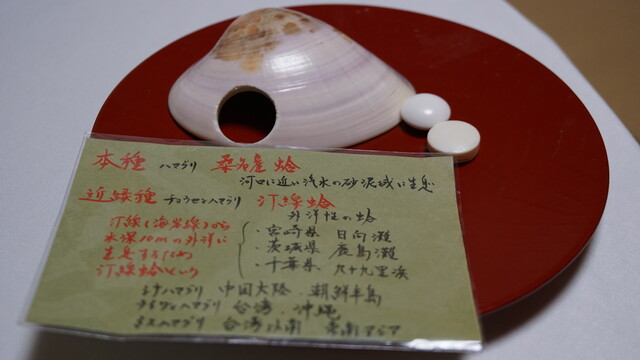 本種 ハマグリ 桑名産 蛤
河口に近い汽水の砂泥域に生息
近縁種 チョウセンハマグリ 汀線蛤
外洋性の蛤
汀線(海岸線)から
水深10mの外洋に
生息するため
汀線蛤という
・宮崎県 日向灘
・茨城県 鹿島灘
・千葉県 九十九里浜
シナハマグリ 中国大陸、朝鮮半島
ハマグリ 台湾、沖縄
ハマグリ 台湾以南 東南アジア